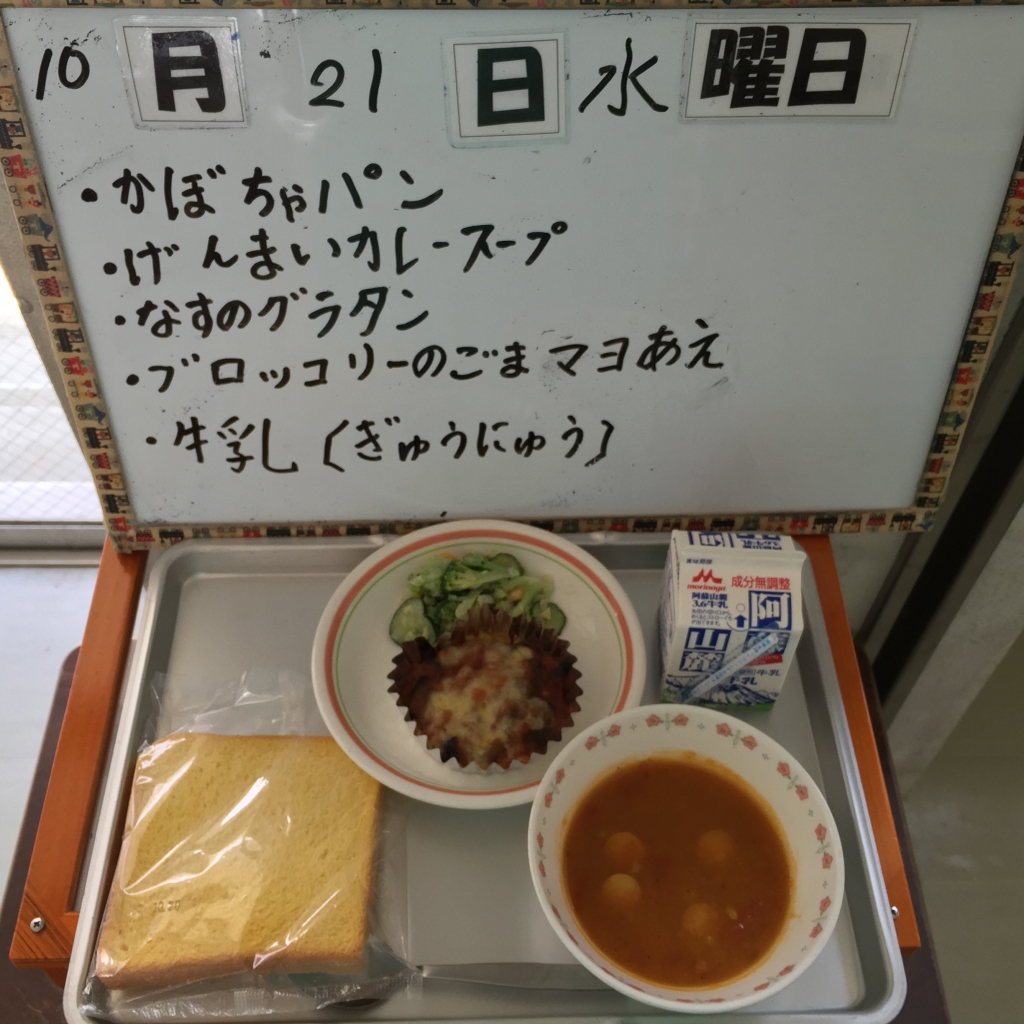 10月21日水曜日
・かぼちゃパン
・げんまいカレースープ
・なすのグラタン
・ブロッコリーのごまマヨあえ
・牛乳(ぎゅうにゅう)
morinaga
成分無調整
阿蘇山麓
3.6牛乳
阿
山
牛乳